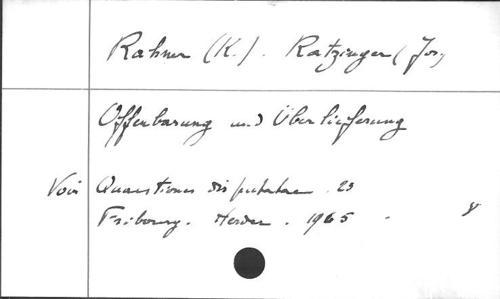 Rahner (K.). Ratzinger (Jos.)
Offenbarung und Überlieferung
Voir Quaestiones disputatae . 25
Fribourg. Herder . 1965 . 8